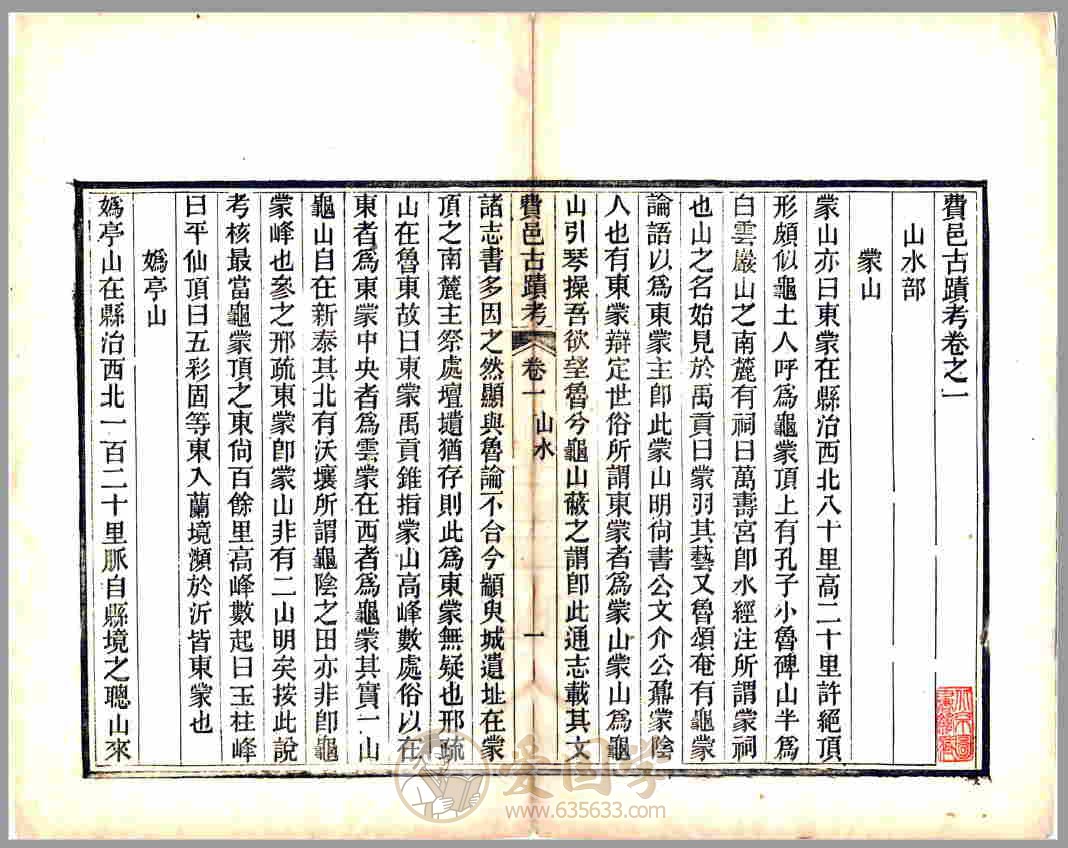 費邑古蹟考卷之一
山水部
蒙山
蒙山亦曰東蒙在縣治西北八十里高二十里許絕頂
形頗似龜土人呼爲龜蒙頂上有孔子小魯碑山半爲
白雲巖山之南麓有祠曰萬壽宮卽水經注所謂蒙祠
也山之名始見於禹貢曰蒙羽其藝又魯頌奄有龜蒙
論語以爲東蒙主卽此蒙山明尙書公文介公鼐蒙陰
人也有東蒙辯定世俗所謂東蒙者爲蒙山蒙山爲龜
山引琴操吾欲望魯兮龜山蔽之謂卽此通志載其文
費邑古蹟考
卷一
山水
一
諸志書多因之然顯與魯論不合今顓臾城遺址在蒙
頂之南麓主祭處壇壝猶存則此爲東蒙無疑也邢疏
山在魯東故曰東蒙禹貢錐指蒙山高峰數處俗以在
東者爲東蒙中央者爲雲蒙在西者爲龜蒙其實一山
龜山自在新泰其北有沃壤所謂龜陰之田亦非卽龜
蒙峰也參之邢疏東蒙卽蒙山非有二山明矣按此說
考核最當龜蒙頂之東尙百餘里高峰數起曰玉柱峰
曰平仙頂曰五彩固等東入蘭境瀕於沂皆東蒙也
嬀亭山
嬀亭山在縣治西北一百二十里脈自縣境之聰山來
爱国学
www.635633.com